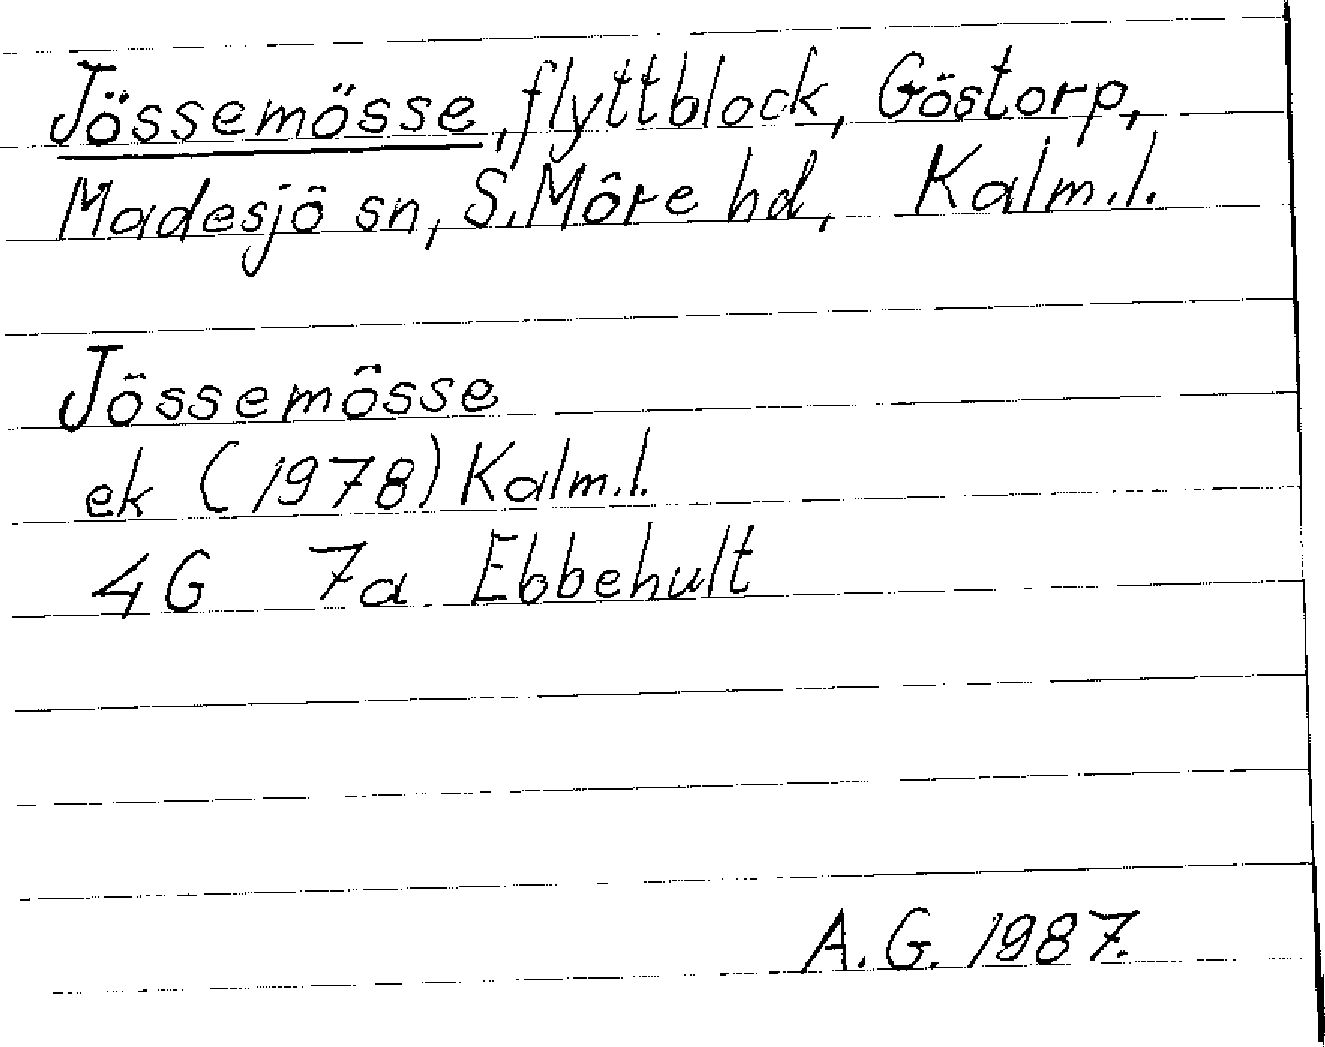 Jössemösse, flyttblock, Göstorp,
Madesjö sn, S. Möre hd, Kalm.l.
Jössemösse
ek (1978) Kalm.l.
4G 7a Ebbehult
A.G. 1987.